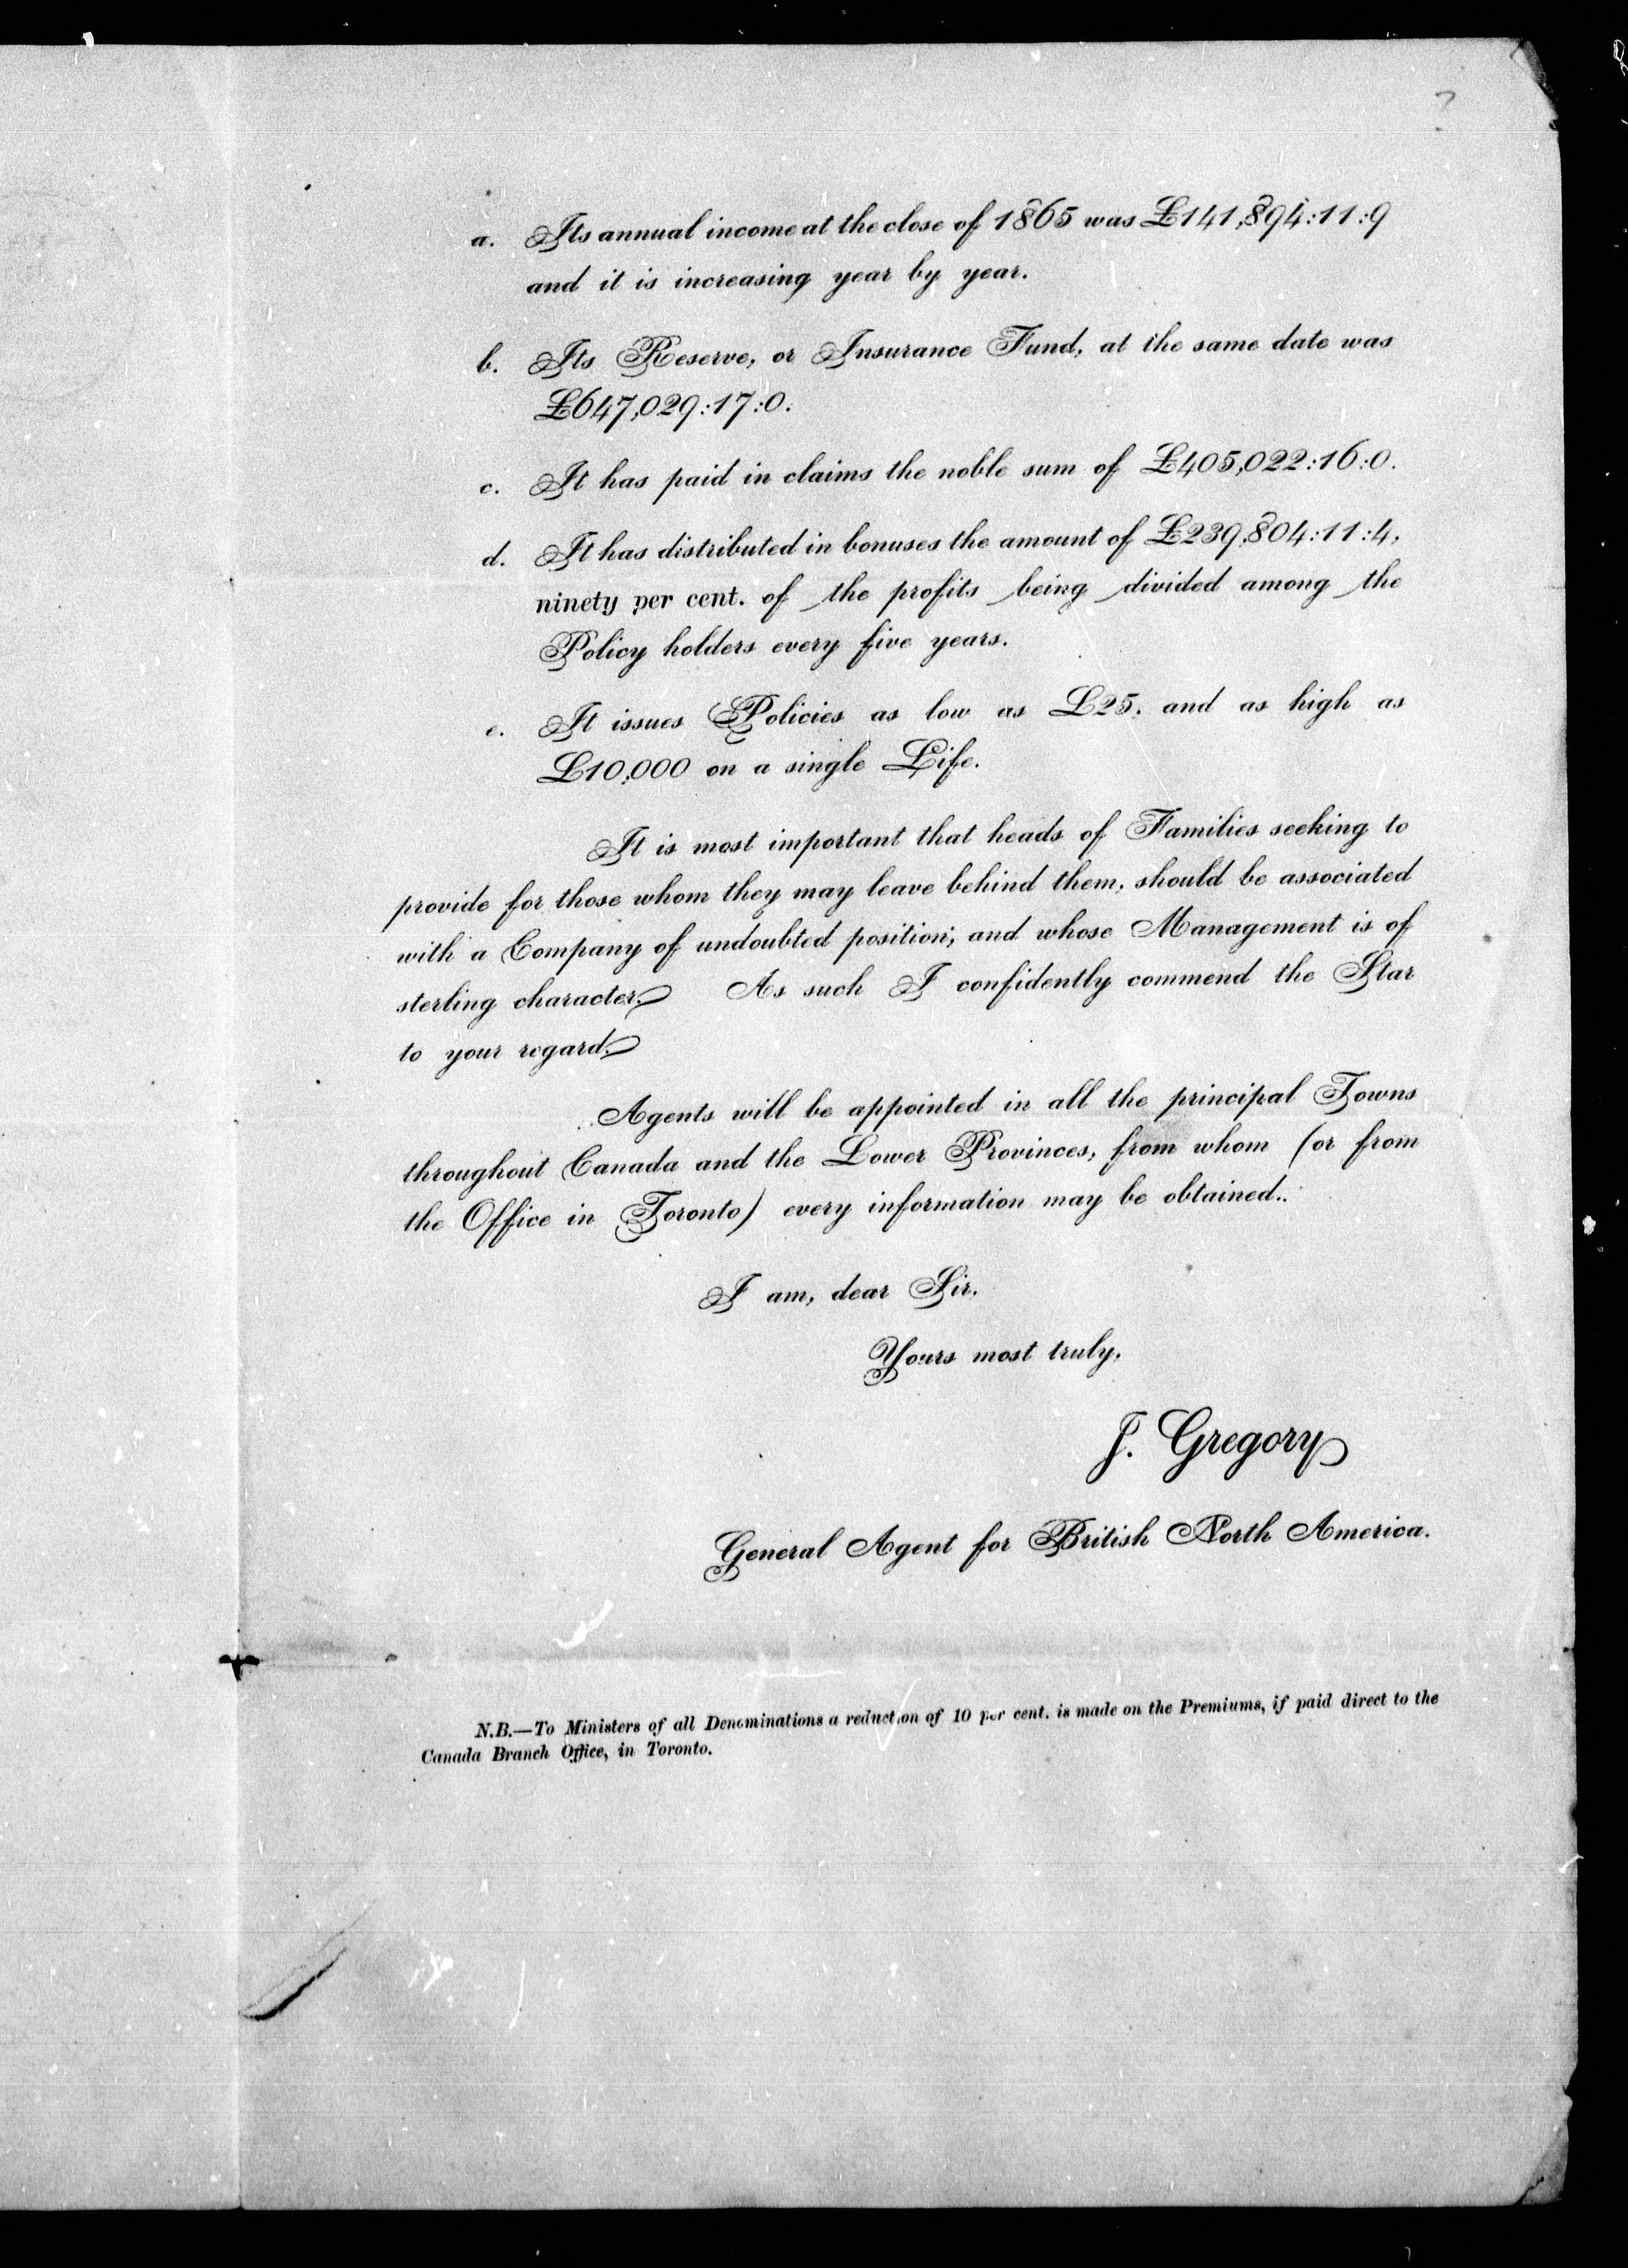 a. Its annual income at the close of 1865 was £141,894:11:9
and it is increasing year by year.
b. Its Reserve, or Insurance Fund, at the same date was
£647,029:17:0.
c. It has paid in claims the noble sum of £405,022:16:0.
d. It has distributed in bonuses the amount of £239,804:11:4,
ninety per cent. of the profits being divided among the
Policy holders every five years.
e. It issues Policies as low as £25, and as high as
£10,000 on a single Life.
It is most important that heads of Families seeking to
provide for those whom they may leave behind them, should be associated
with a Company of undoubted position; and whose Management is of
sterling character. As such I confidently commend the Star
to your regard.
Agents will be appointed in all the principal Towns
throughout Canada and the Lower Provinces, from whom (or from
the Office in Toronto) every information may be obtained..
I am, dear Sir,
Yours most truly,
J. Gregory
General Agent for British North America.
N.B.—To Ministers of all Denominations a reduction of 10 per cent. is made on the Premiums, if paid direct to the
Canada Branch Office, in Toronto.